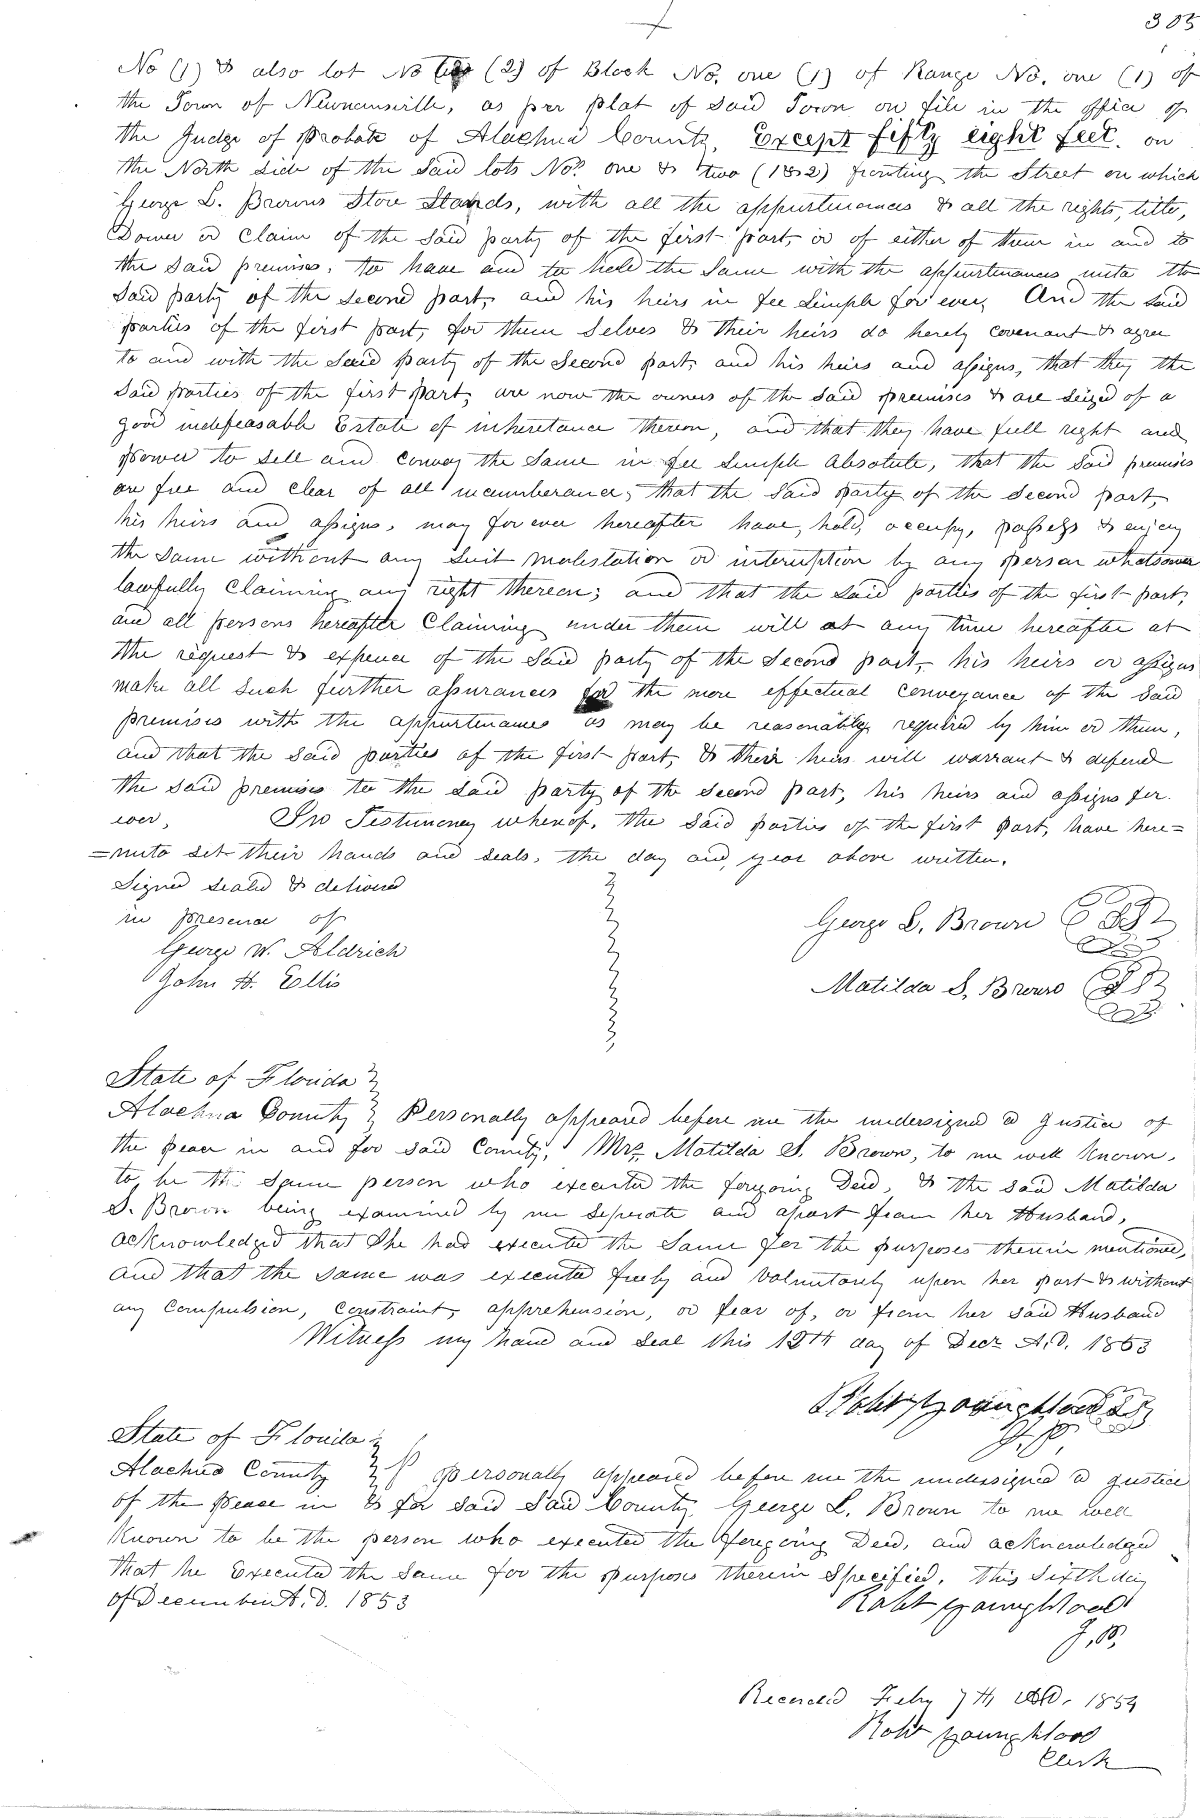 305
No (1) & also lot No two (2) of Block No. one (1) of Range No. one (1) of
the Town of Newnansville, as per plat of said Town on file in the office of
the Judge of Probate of Alachua County, Except fifty eight feet. on
the North side of the said lots Nos. one & two (1&2) fronting the Street on which
George L. Browns Store Stands, with all the appurtenances & all the rights, title,
Dower or Claim of the said party of the first part, or of either of them in and to
the said premises, to have and to hold the same with the appurtenances unto the
said party of the second part, and his heirs in fee simple for ever, And the said
parties of the first part, for them selves & their heirs do hereby covenant & agree
to and with the said party of the second part, and his heirs and assigns, that they the
said parties of the first part, are now the owners of the said premises & are seized of a
good indefeasable Estate of inheretance thereon, and that they have full right and
power to sell and convey the same in fee simple absolute, that the said premises
are free and clear of all incumberance, that the said party of the second part,
his heirs and assigns, may for ever hereafter have, hold, occupy, possess & enjoy
the same without any suit molestation or interruption by any person whatsoever
lawfully claiming any right thereon; and that the said parties of the first part,
and all persons hereafter Claiming under them will at any time hereafter at
the request & expence of the said party of the second part, his heirs or assigns
make all such further assurances for the more effectual conveyance of the said
premises with the appurtenances as may be reasonably required by him or them,
and that the said parties of the first part, & their heirs will warrant & defend
the said premises to the said party of the second part, his heirs and assigns for
ever, In Testimoney whereof, the said parties of the first part, have here=
=unto set their hands and seals, the day and year above written.
Signed seald & delivered
in presence of
George W. Aldrich
John H. Ellis
George L. Brown
Matilda S. Brown
State of Florida
Alachua County Personally appeared before me the undersigned a Justice of
the peace in and for said County, Mrs. Matilda S. Brown, to me well known,
to be the same person who executed the forgoing Deed, & the said Matilda
S. Brown being examined by me seperate and apart from her Husband,
acknowledged that she had executed the same for the purposes therein mentioned,
and that the same was executed freely and voluntarely upon her part & without
any compulsion, constraint, apprehension, or fear of, or from her said Husband
Witness my hand and seal this 12th day of Decr A.D. 1853
Robt Youngblood
J.P.
State of Florida
Alachua County personally appeared before me the undersigned a justice
of the peace in & for said said County George L. Brown to me well
Known to be the person who executed the foregoing Deed, and acknowledged
that he Executed the same for the purposes therein Specified, this sixth day
of December A.D. 1853
Robt Youngblood
J.P.
Recorded Feby 7th AD. 1854
Robt Youngblood
Clerk